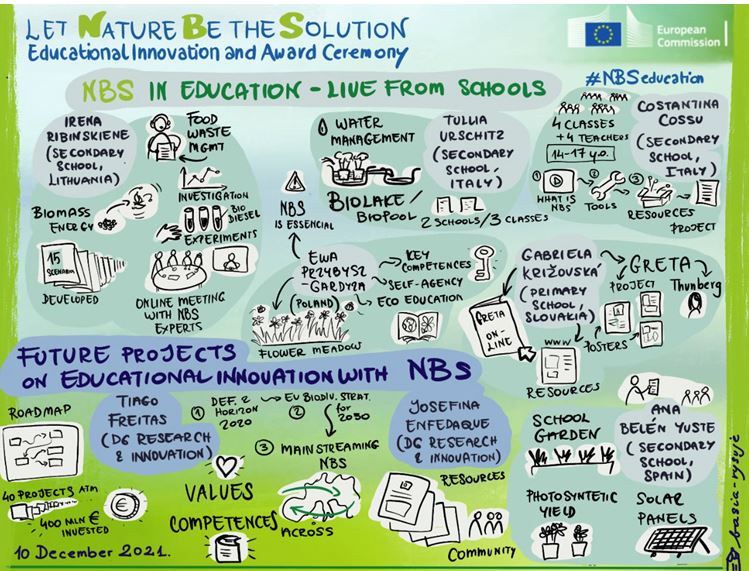 LET NATURE BE THE SOLUTION
Educational Innovation and Award Ceremony
European
Commission
NBS IN EDUCATION - LIVE FROM SCHOOLS
#NBSeducation
IRENA
RIBINSKIENE
(SECONDARY
SCHOOL,
LITHUANIA)
FOOD
WASTE
MGMT
INVESTIGATION
BIO
DIESEL
EXPERIMENTS
BIOMASS
ENERGY
15
SCENARIO
DEVELOPED
ONLINE MEETING
WITH NBS
EXPERTS
WATER
MANAGEMENT
TULLIA
URSCHITZ
(SECONDARY
SCHOOL,
ITALY)
BIOLAKE/
BIOPOOL
2 SCHOOLS/3 CLASSES
4 CLASSES
+4 TEACHERS
14-17 y.o.
COSTANTINA
COSSU
(SECONDARY
SCHOOL,
ITALY)
①
WHAT IS
NBS
②
TOOLS
③
RESOURCES
PROJECT
NBS
IS ESSENCIAL
EWA
PRZYBYSZ
-GARDYZA
(POLAND)
KEY
COMPETENCES
SELF-AGENCY
ECO EDUCATION
FLOWER MEADOW
GABRIELA
KRIŽOVSKÁ
(PRIMARY
SCHOOL,
SLOVAKIA)
GRETA
PROJECT
Thunberg
GRETA
ON-
LINE
WWW
POSTERS
RESOURCES
FUTURE PROJECTS
ON EDUCATIONAL INNOVATION WITH NBS
ROADMAP
TIAGO
FREITAS
(DG RESEARCH
& INNOVATION)
40 PROJECTS ATM
400 MLN €
INVESTED
① DEF. 2
HORIZON
2020
EU BIODIV. STRAT.
for
2030
②
③ MAINSTREAMING
NBS
VALUES
COMPETENCES
ACROSS
JOSEFINA
ENFEDAQUE
(DG RESEARCH
& INNOVATION)
RESOURCES
COMMUNITY
SCHOOL
GARDEN
ANA
BELÉN YUSTE
(SECONDARY
SCHOOL,
SPAIN)
PHOTOSYNTETIC
YIELD
SOLAR
PANELS
10 December 2021.
basia-rysuje